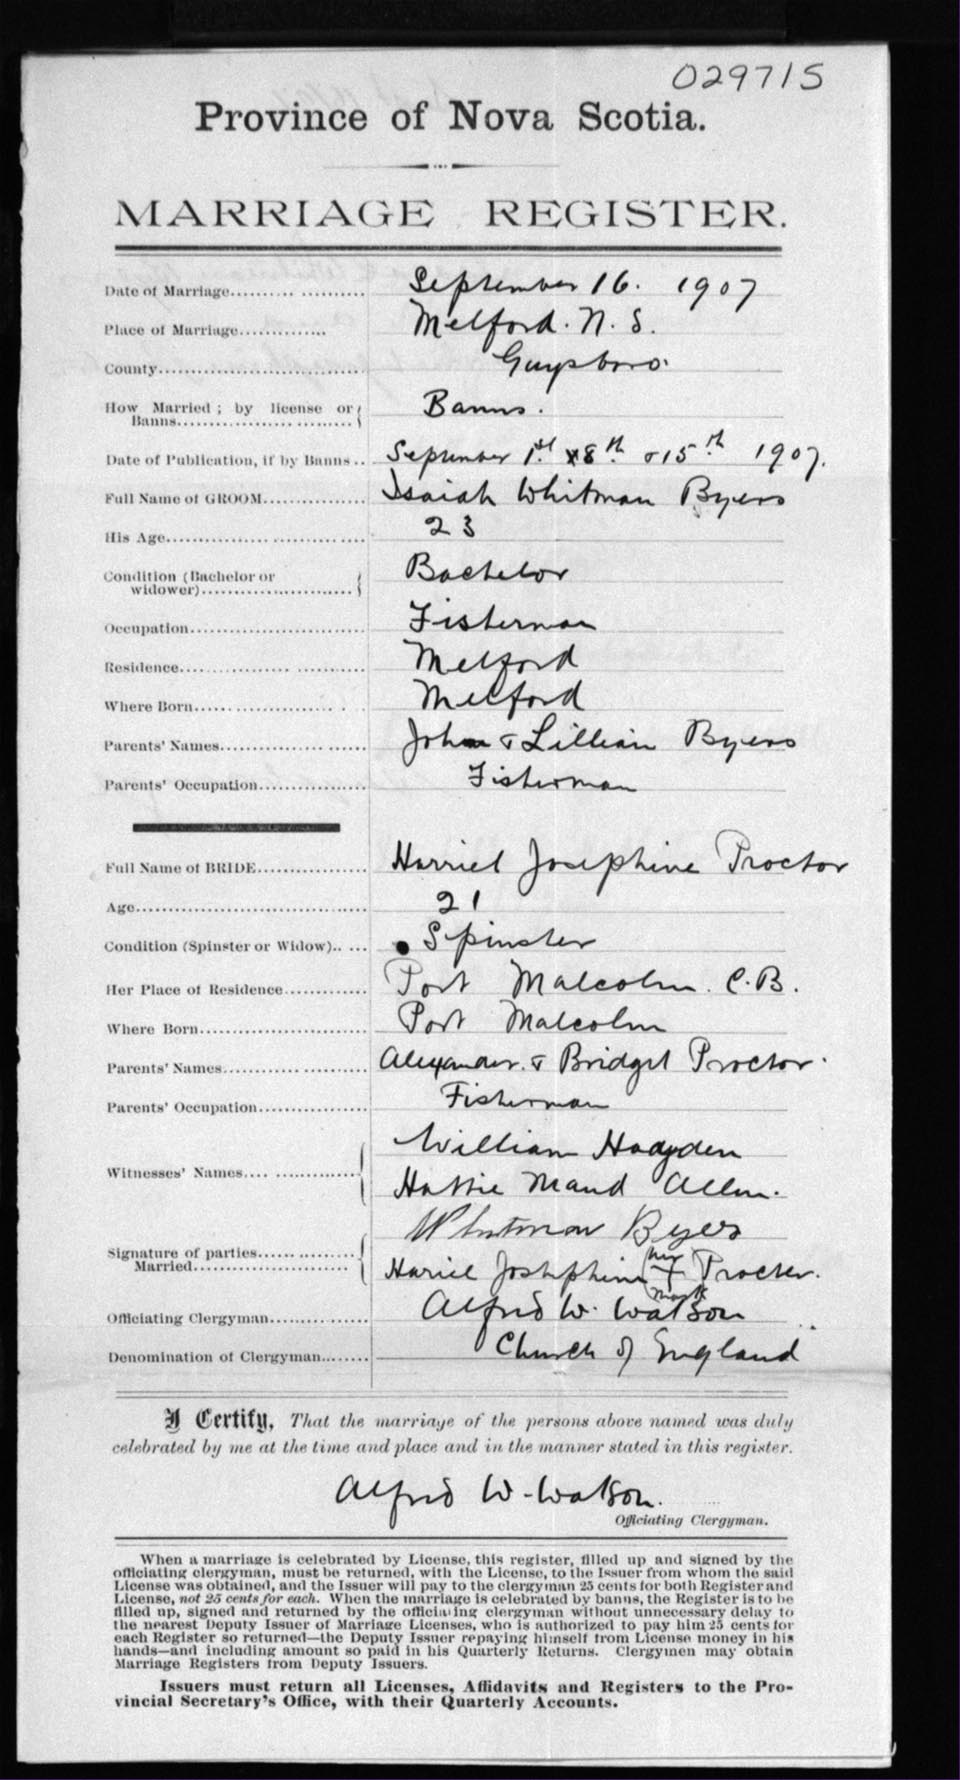 029715
Province of Nova Scotia.
MARRIAGE REGISTER.
Date of Marriage September 16. 1907
Place of Marriage Melford. N. S.
County Guysboro.
How Married ; by license or Banns Banns.
Date of Publication, if by Banns September 1st. & 8th. & 15th 1907.
Full Name of GROOM Isaiah Whitman Byers
His Age 23
Condition (Bachelor or widower) Bachelor
Occupation Fisherman
Residence Melford
Where Born Melford
Parents' Names John & Lillian Byers
Parents' Occupation Fisherman
Full Name of BRIDE Harriet Josephine Proctor
Age 21
Condition (Spinster or Widow) Spinster
Her Place of Residence Port Malcolm. C.B.
Where Born Port Malcolm
Parents' Names Alexander. & Bridget Proctor.
Parents' Occupation Fisherman
Witnesses' Names William
Hattie Maud Allen.
Signature of parties Married Whitman Byers
Josephine her + mark Procter.
Officiating Clergyman Alfred W. Watson
Denomination of Clergyman Church of England
I Certify, That the marriage of the persons above named was duly
celebrated by me at the time and place and in the manner stated in this register.
Alfred W. Watson.
Officiating Clergyman.
When a marriage is celebrated by License, this register, filled up and signed by the
officiating clergyman, must be returned, with the License, to the Issuer from whom the said
License was obtained, and the Issuer will pay to the clergyman 25 cents for both Register and
License, not 25 cents for each. When the marriage is celebrated by banns, the Register is to be
filled up, signed and returned by the officiating clergyman without unnecessary delay to
the nearest Deputy Issuer of Marriage Licenses, who is authorized to pay him 25 cents for
each Register so returned—the Deputy Issuer repaying himself from License money in his
hands—and including amount so paid in his Quarterly Returns. Clergymen may obtain
Marriage Registers from Deputy Issuers.
Issuers must return all Licenses, Affidavits and Registers to the Pro-
vincial Secretary's Office, with their Quarterly Accounts.